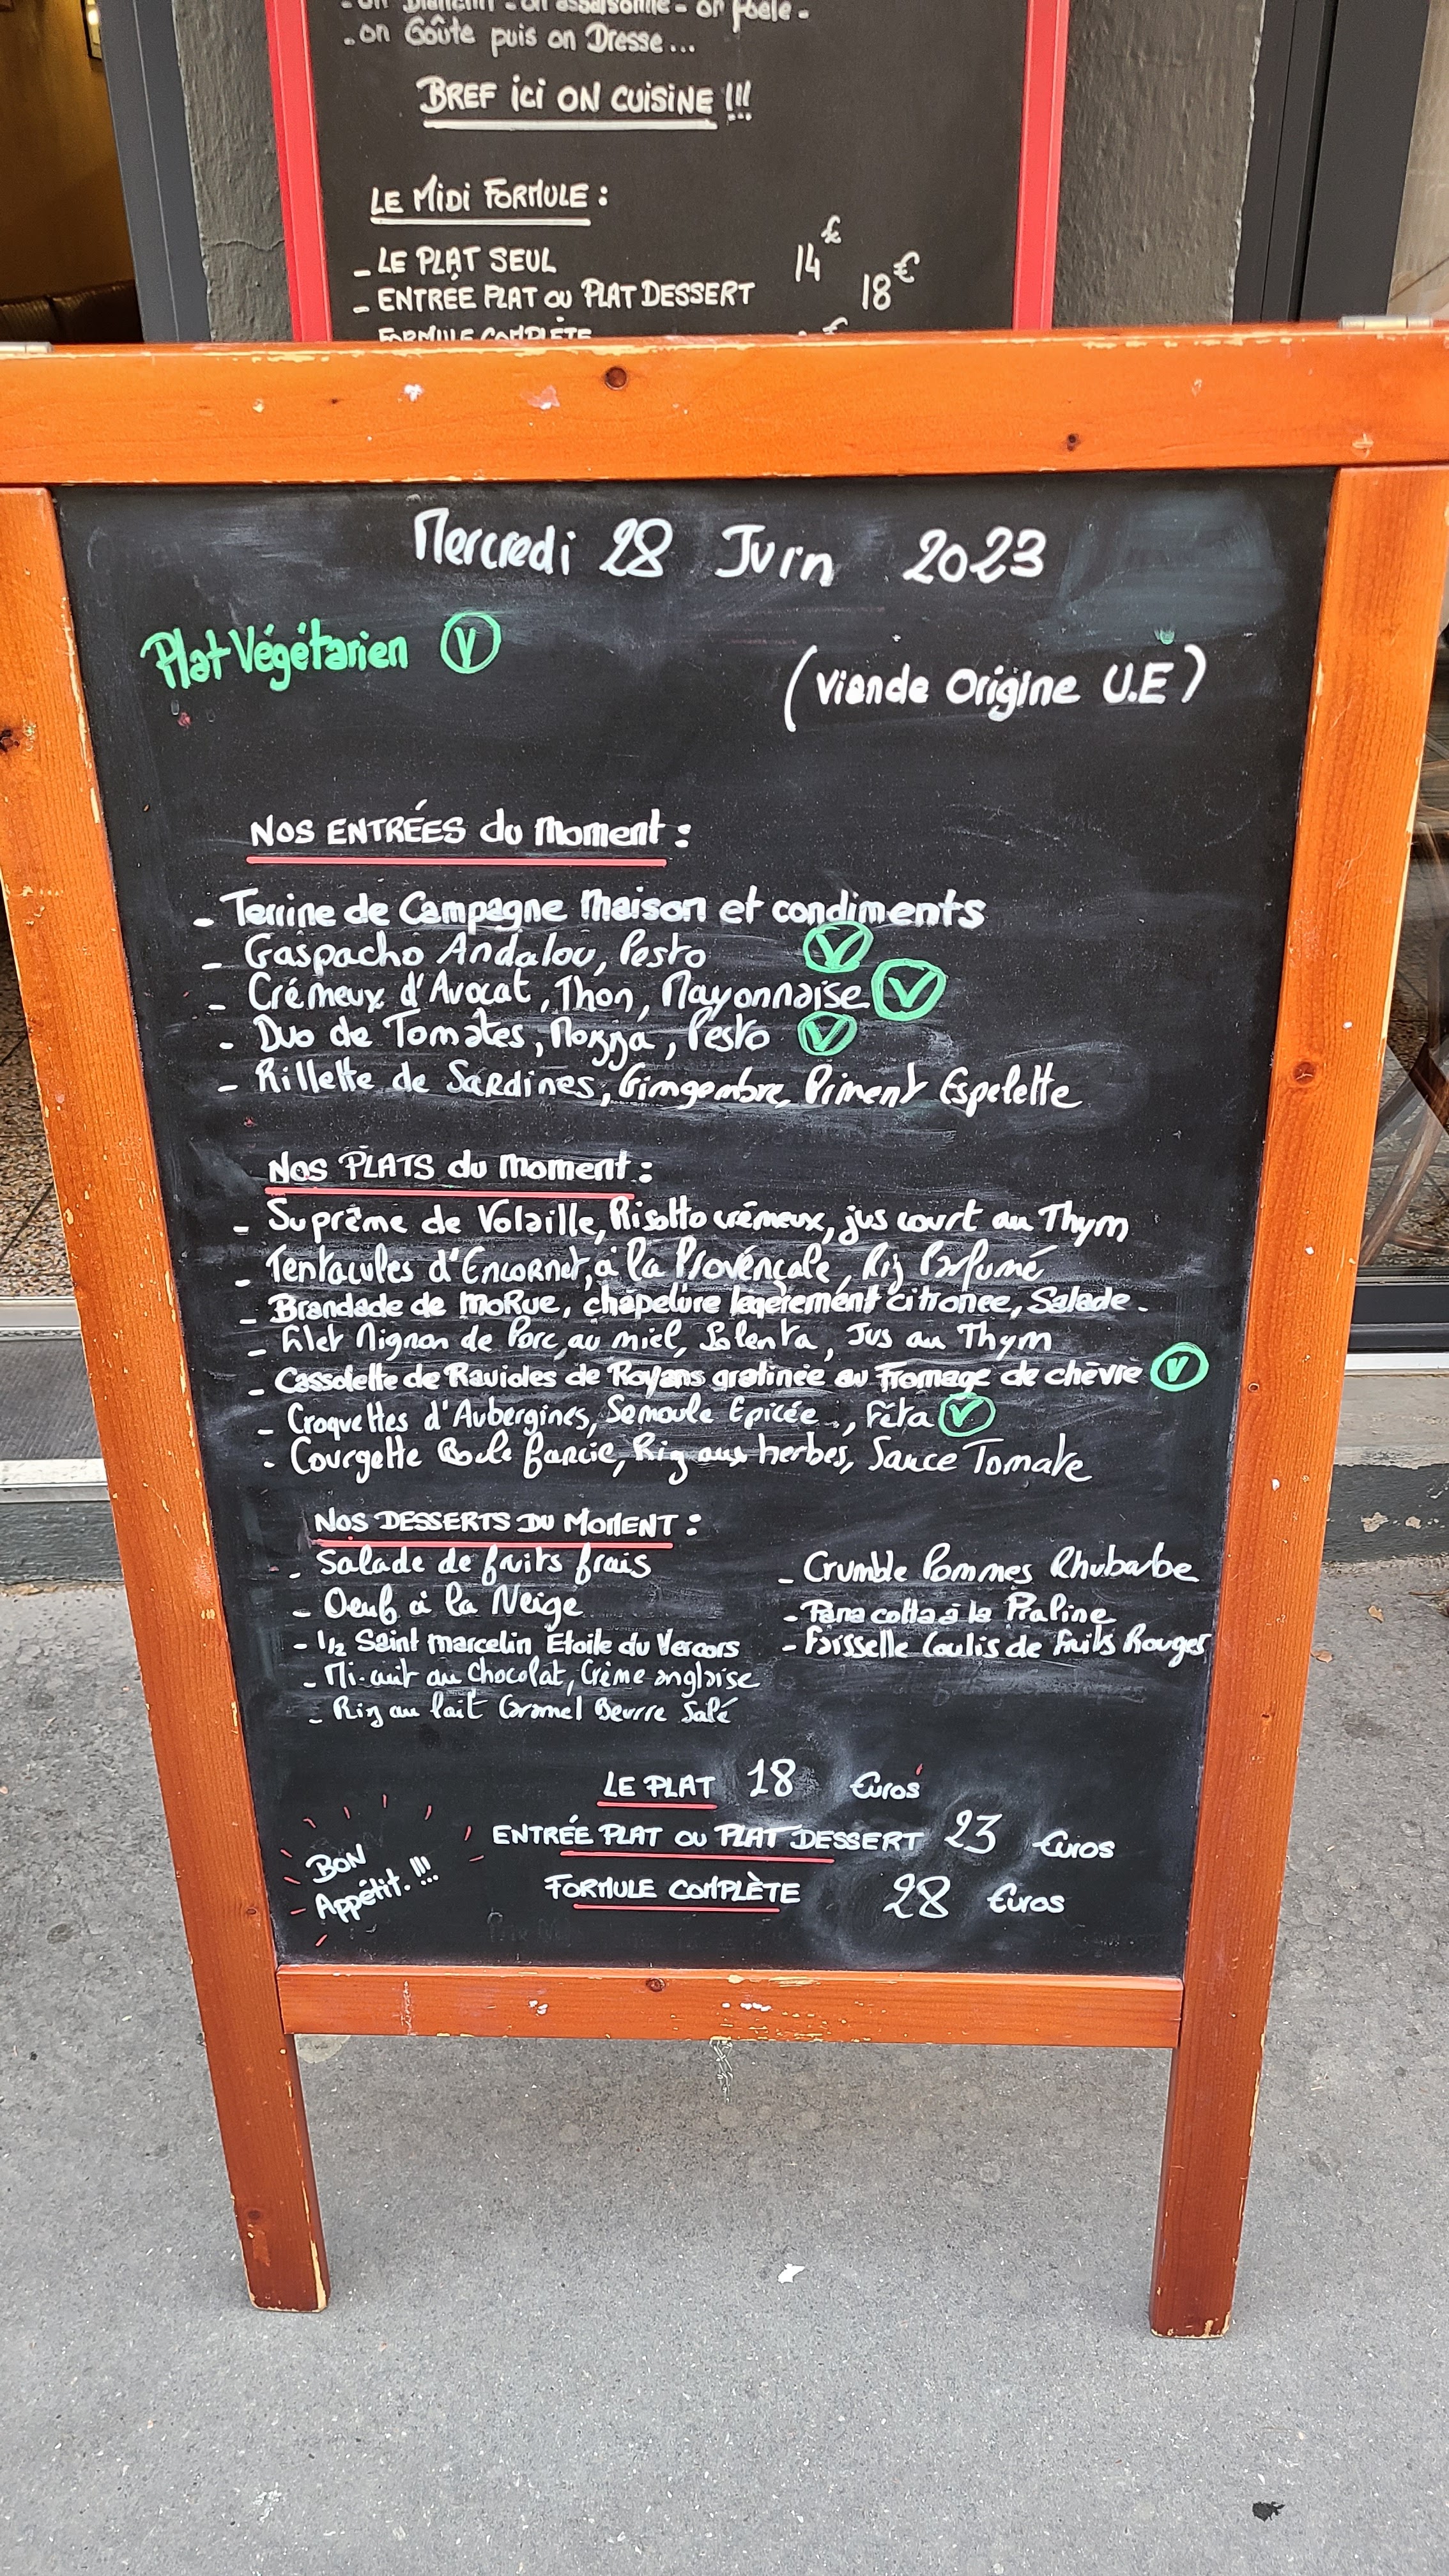 - on Blanchit - on assaisonne - on poêle -
- on Goûte puis on Dresse...
BREF ici ON CUISINE !!!
LE MIDI FORMULE :
- LE PLAT SEUL 14€
- ENTRÉE PLAT OU PLAT DESSERT 18€
FORMULE COMPLÈTE €
Mercredi 28 Juin 2023
Plat Végétarien V
(Viande Origine U.E)
NOS ENTRÉES du Moment :
- Terrine de Campagne Maison et condiments
- Gaspacho Andalou, Pesto V
- Crémeux d'Avocat, Thon, Mayonnaise V
- Duo de Tomates, Mozza, Pesto V
- Rillette de Sardines, Gimgembre, Piment Espelette
NOS PLATS du Moment :
- Suprême de Volaille, Risotto crémeux, jus court au Thym
- Tentacules d'Encornet, à la Provençale, Riz Parfumé
- Brandade de MoRue, chapelure legèrement citronee, Salade.
- Filet Mignon de Porc, au miel, Polenta, Jus au Thym
- Cassolette de Ravioles de Royans gratinée au Fromage de chèvre V
- Croquettes d'Aubergines, Semoule Epicée, Fêta V
- Courgette Boule farcie, Riz aux herbes, Sauce Tomate
NOS DESSERTS DU MOMENT :
- Salade de fruits frais
- Oeuf à la Neige
- 1/2 Saint marcelin Etoile du Vercors
- Mi-cuit au Chocolat, Crème anglaise
- Riz au lait Caramel Beurre Salé
- Crumble Pommes Rhubarbe
- Pana cotta à la Praline
- Faisselle Coulis de Fruits Rouges
LE PLAT 18 €uros
ENTRÉE PLAT OU PLAT DESSERT 23 €uros
FORMULE COMPLÈTE 28 €uros
BON
Appétit. !!!